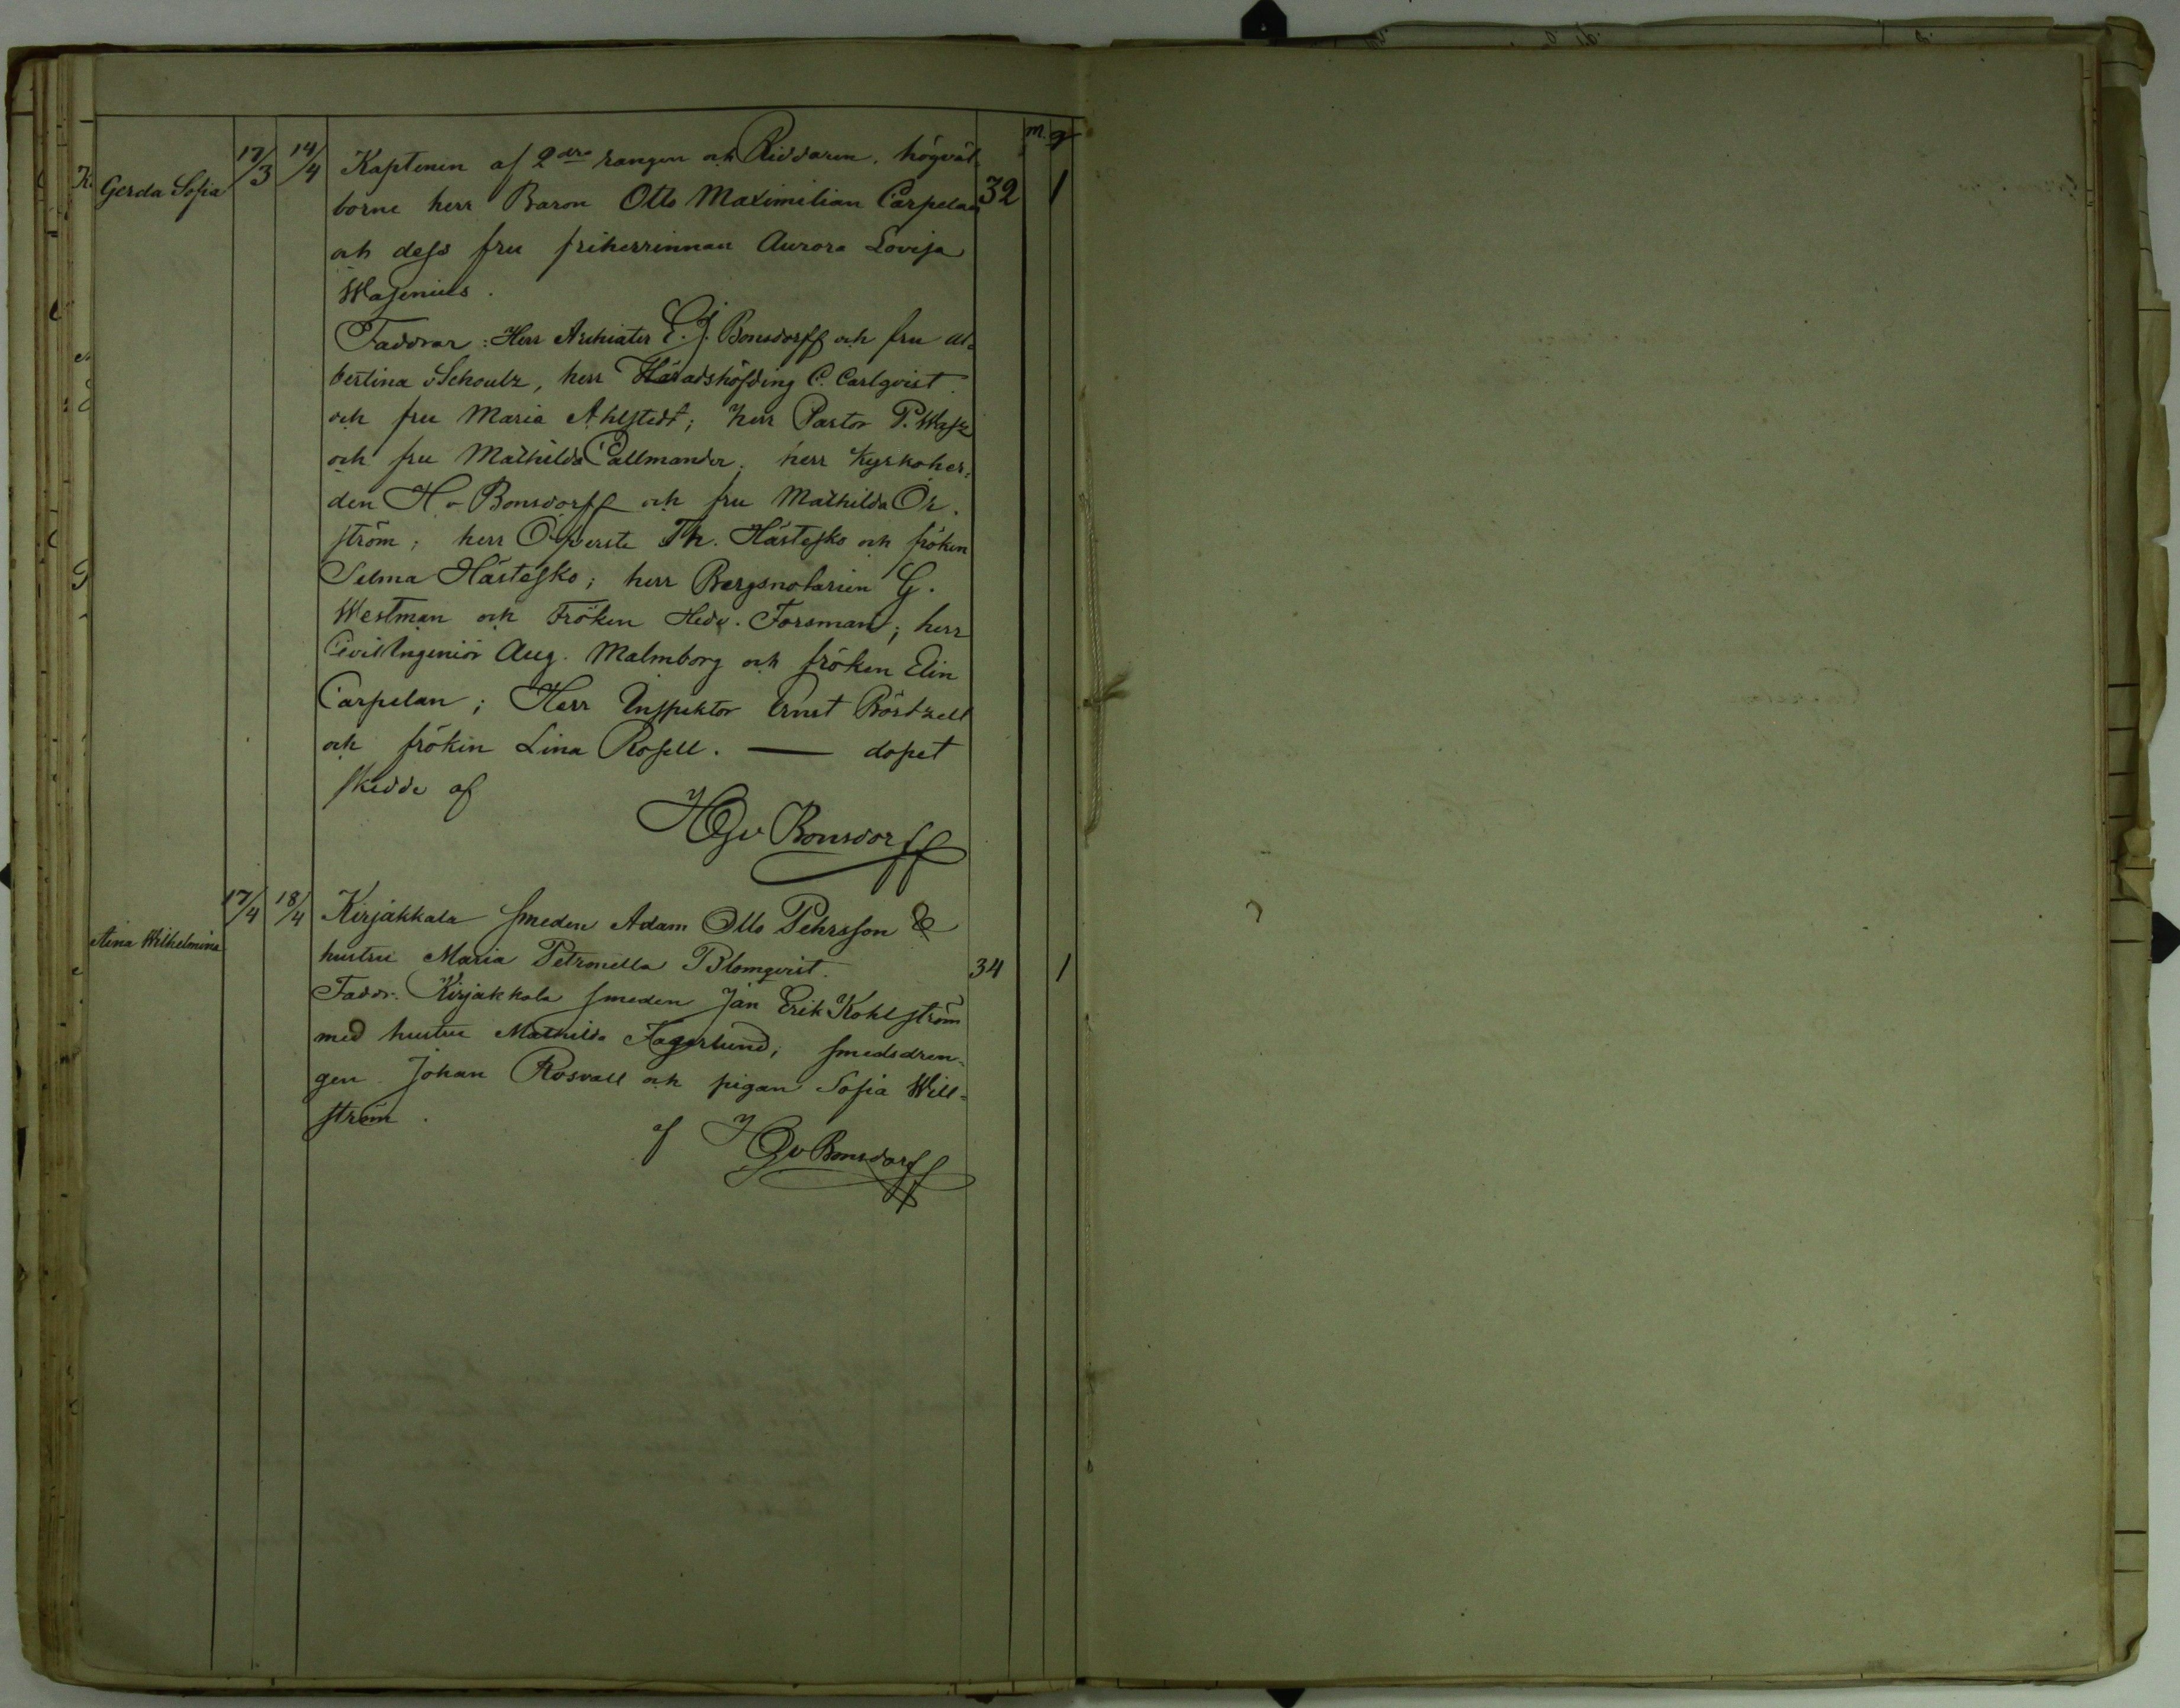 m. q
Gerda Sofia 17/3 14/4 Kaptenen af 2dra rangen och Riddaren, högväl
borne herr Baron Otto Maximilian Carpelan 32 1
och dess fru friherrinnan Aurora Lovisa
Wasenius.
Faddrar: Herr Archiater E. J. Bonsdorff och fru Al=
bertina v Schoultz, herr Häradshöfding C. Carlqvist
och fru Maria Ahlstedt; herr Pastor P.
och fru Mathilda Pallmander; herr Kyrkoher=
den H v Bonsdorff och fru Mathilda Ör.
ström; herr Öfverste Th. Hästesko och fröken
Selma Hästesko; herr Bergsnotarien G.
Westman och Fröken Hedv. Forsman; herr
Civilingeniör Aug. Malmborg och fröken Elin
Carpelan; Herr Inspektor Ernst Röstzell
och fröken Lina Rosell. — dopet
skedde af
HGv Bonsdorff
Aina Wilhelmina 17/4 18/4 Kirjakkala smeden Adam Otto Pehrsson &
hustru Maria Petronella Blomqvist. 34 1
Faddr. Kirjakkala smeden Jan Erik Kohlström
med hustru Mathilda Fagerlund; smedsdren=
gen Johan Rosvall och pigan Sofia Will=
ström.
af HGv Bonsdorff